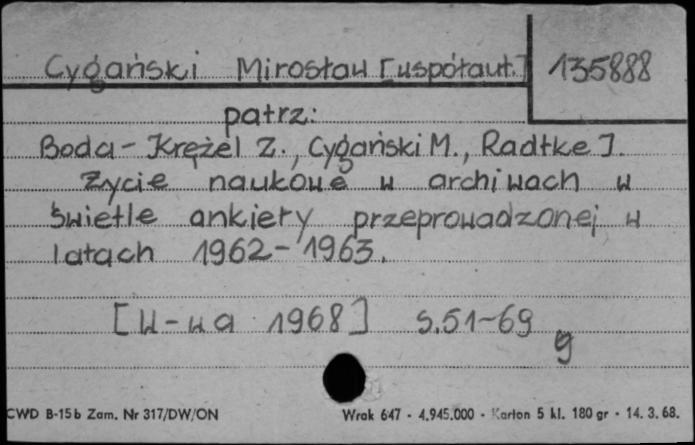 Cygański Mirosław [współaut.] 135888
patrz:
Boda-Krężel Z., Cygański M., Radtke I.
Życie naukowe w archiwach w
świetle ankiety przeprowadzonej w
latach 1962-1963.
[W-wa 1968] s.51-69
g
CWD B-15b Zam. Nr 317/DW/ON Wrak 647 - 4.945.000 - Karton 5 kl. 180 gr - 14. 3. 68.